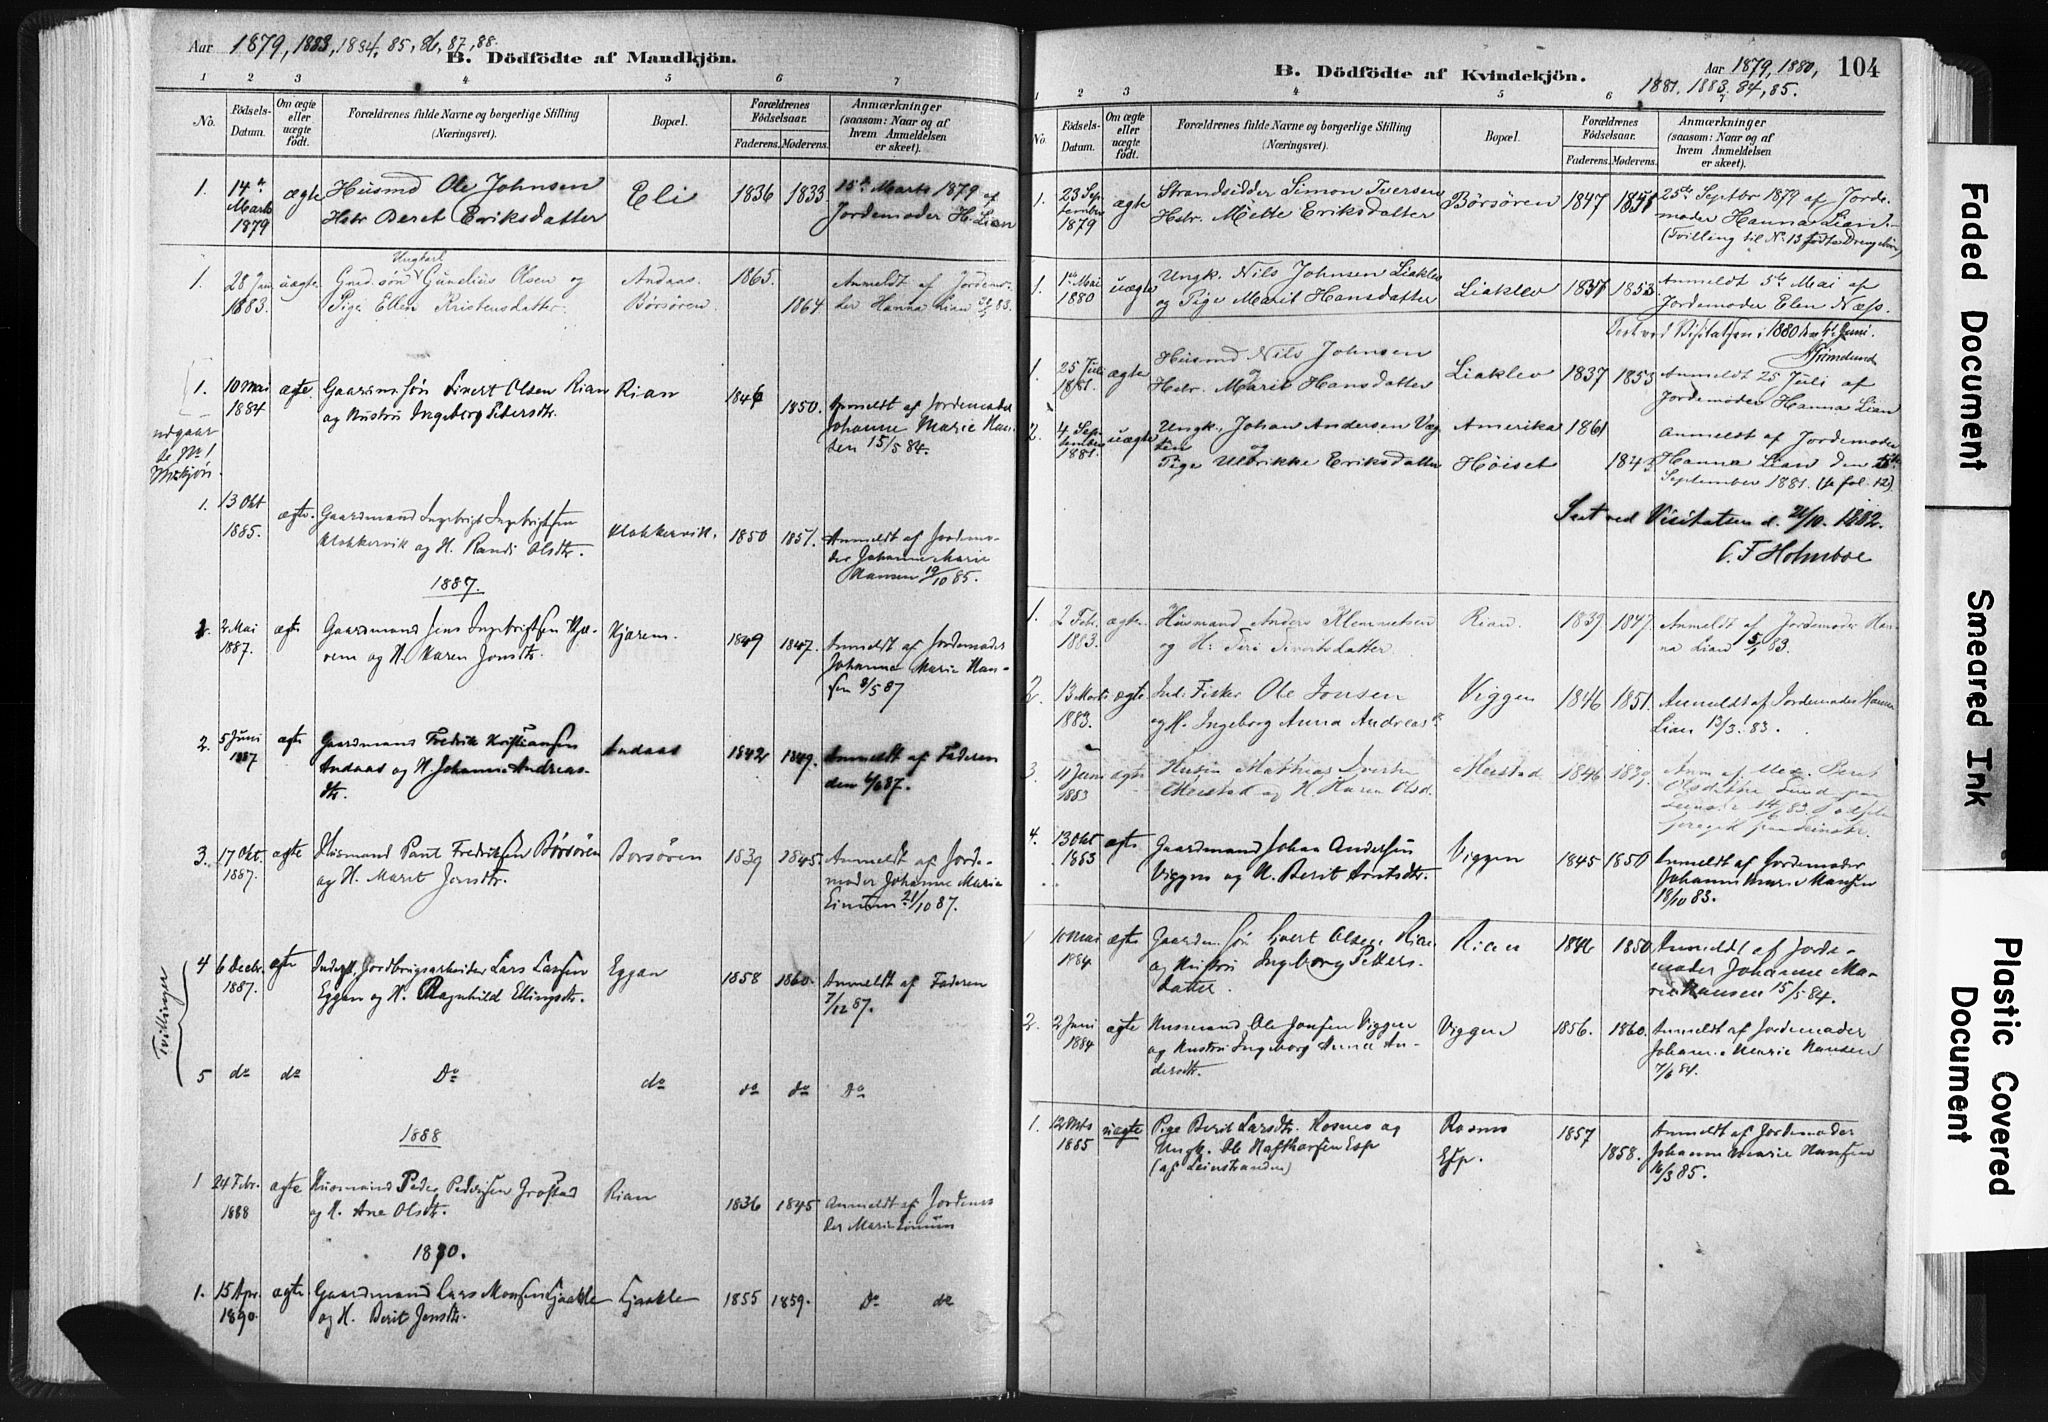 Aar 1879, 1883, 1884, 85, 86, 87, 88.
B. Dödfödte af Mandkjön.
1 2 3 4 5 6 7
No. Födsels-Datum. Om ægte eller uægte födt. Forældrenes fulde Navne og borgerlige Stilling (Næringsvei). Bopæl. Forældrenes Födselsaar. Faderens. Moderens. Anmærkninger (saasom: Naar og af hvem Anmeldelsen er skeet).
1. 14de Marts 1879 ægte Husmd Ole Johnsen
Hstr Beret Eriksdatter Eli 1836 1833 15de Marts 1879 af
Jordemoder H. Lian
1. 28 Jan 1883. uægte Ungkarl
Grd.sön Gunelius Olsen og Andaas 1865. Anmeldt af Jordemo-
Pige Ellen Kristensdatter. Börsören. 1864 der Hanna Lian 83.
1. 10 Mai 1884 ægte Gaardm Søn Sivert Olsen Rian Rian 1846 1850. Anmeldt af Jordemoder
og Hustru Ingeborg Petersdtr. Johanne Marie Han-
sen 15/5 84.
udgaar
se No 1
Kvkjøn.
1. 13 Okt 1885. ægte. Gaardmand Ingebrigt Ingebrigtsen
Klokkervik og H. Randi Olsdtr. Klokkervik. 1850 1857. Anmeldt af Jordemo-
der Johanne Marie
Hansen 19/10 85.
1887.
1. 2 Mai 1887. ægte Gaardmand Jens Ingebrigtsen Kjæ-
rem og H. Karen Jonsdtr. Kjærem. 1849 1847. Anmeldt af Jordemoder
Johanne Marie Han-
sen 8/5 87
2. 5 Juni 1887 ægte Gaardmand Fredrik Kristiansen
Andaas og H. Johanna Andreas-
dtr. Andaas 1842 1849. Anmeldt af Faderen
den 6/6 87.
3. 17 Okt. 1887. ægte Husmand Paul Fredriksen Børsøren Børsören 1839 1845. Anmeldt af Jorde-
og H. Marit Jonsdtr. moder Johanne Marie
Einum 21/10 87.
Tvillinger
4 6 Decbr. 1887. ægte Inderst, Jordbrugsarbeider Lars Larsen
Eggan og H. Ragnhild Ellingsdtr. Eggan 1858 1860. Anmeldt af Faderen
7/12 87.
5 do do Do do do do Do
1888
1 24 Febr. 1888 ægte Husmand Peder Pedersen
og H. Ane Olsdtr. Rian 1836 1845 Anmeldt af Jordemo
der Marie Einum
1890.
1. 15 Apr. 1890. ægte Gaardmand Lars Monsen Gaakle Gaakle 1855 1859. Do do
og H. Berit Jonsdtr.
Aar 1879, 1880, 104
1881. 1883. 84, 85.
B. Dödfödte af Kvindekjön.
1 2 3 4 5 6 7
No. Födsels-Datum. Om ægte eller uægte födt. Forældrenes fulde Navne og borgerlige Stilling (Næringsvei). Bopæl. Forældrenes Födselsaar. Faderens. Moderens. Anmærkninger (saasom: Naar og af hvem Anmeldelsen er skeet).
1. 23 Septembr 1879 ægte Strandsidder Simon Iversen Börsören 1847 1851 25de Septbr 1879 af Jorde-
Hstr. Mette Eriksdatter moder Hanna Lian.
(Tvilling til No 13 fødte Drengebörn)
1. 1ste Mai 1880 uægte Ungk. Nils Johnsen Liaklev
og Pige Marit Hansdatter Liaklev 1837 1853 Anmeldt 5te Mai af
Jordemoder Elen Næss.
Seet ved Visitatsen i 1880 den Juni.
Grimelund
1. 25 Juli 1881. ægte Husmd Nils Johnsen
og
Hstr. Marit Hansdatter Liaklev 1837 1853 Anmeldt 25 Juli af
Jordemoder Hanna Lian
2. 4 Septembr 1881. uægte Ungk. Johan Andersen Væg- Amerika 1861 Anmeldt af Jordemoder
sten og
Pige Uldrikke Eriksdatter Höiset 1843 Hanna Lian den
September 1881. (se fol. 12).
Seet ved Visitatsen d. 21/10. 1882.
C. F. Holmboe
1. 2 Febr. 1883. ægte. Husmand Anders Klemetsen Rian. 1839 1847. Anmeldt af Jordemoder Han-
og H: Siri Sivertsdatter na Lian 83.
2. 13 Marts 1883. ægte Ind. Fisker Ole Jonsen Viggen 1846 1851. Anmeldt af Jordemoder Hanna
og H. Ingeborg Anna Andreasdr Lian 13/3. 83.
3. 11 Juni 1883 ægte Husm Mathias
Meistad og H. Karen Olsd. Meistad 1846 1839.
4. 13 Okt 1883 ægte Gaardmand Johan Andersen
Viggen og H. Berit Arntsdtr. Viggen 1845 1850 Anmeldt af Jordemoder
Johanne Marie Hansen
18/10 83.
1 10 Mai 1884 ægte Gaardm. Søn Sivert Olsen Rian
og Hustru Ingeborg Peters-
datter. Rian 1846 1850. Anmeldt af Jorde-
moder Johanne Ma-
rie Hansen 15/5 84.
2. 2 Juni 1884 ægte Husmand Ole Jonsen Viggen
og Hustru Ingeborg Anna An-
dersdtr. Viggen 1856. 1860. Anmeldt af Jordemoder
Johanne Marie Hansen
7/6 84.
1. 12 Mts 1885 uægte Pige Berit Larsdtr. Rosnes og
Ungk. Ole Esp
(af Leinstranden) Rosnes
Esp. 1857 1858. Anmeldt af Jordemoder
Johanne Marie Hansen
16/3 85.
Faded Document
Smeared Ink
Plastic Covered
Document